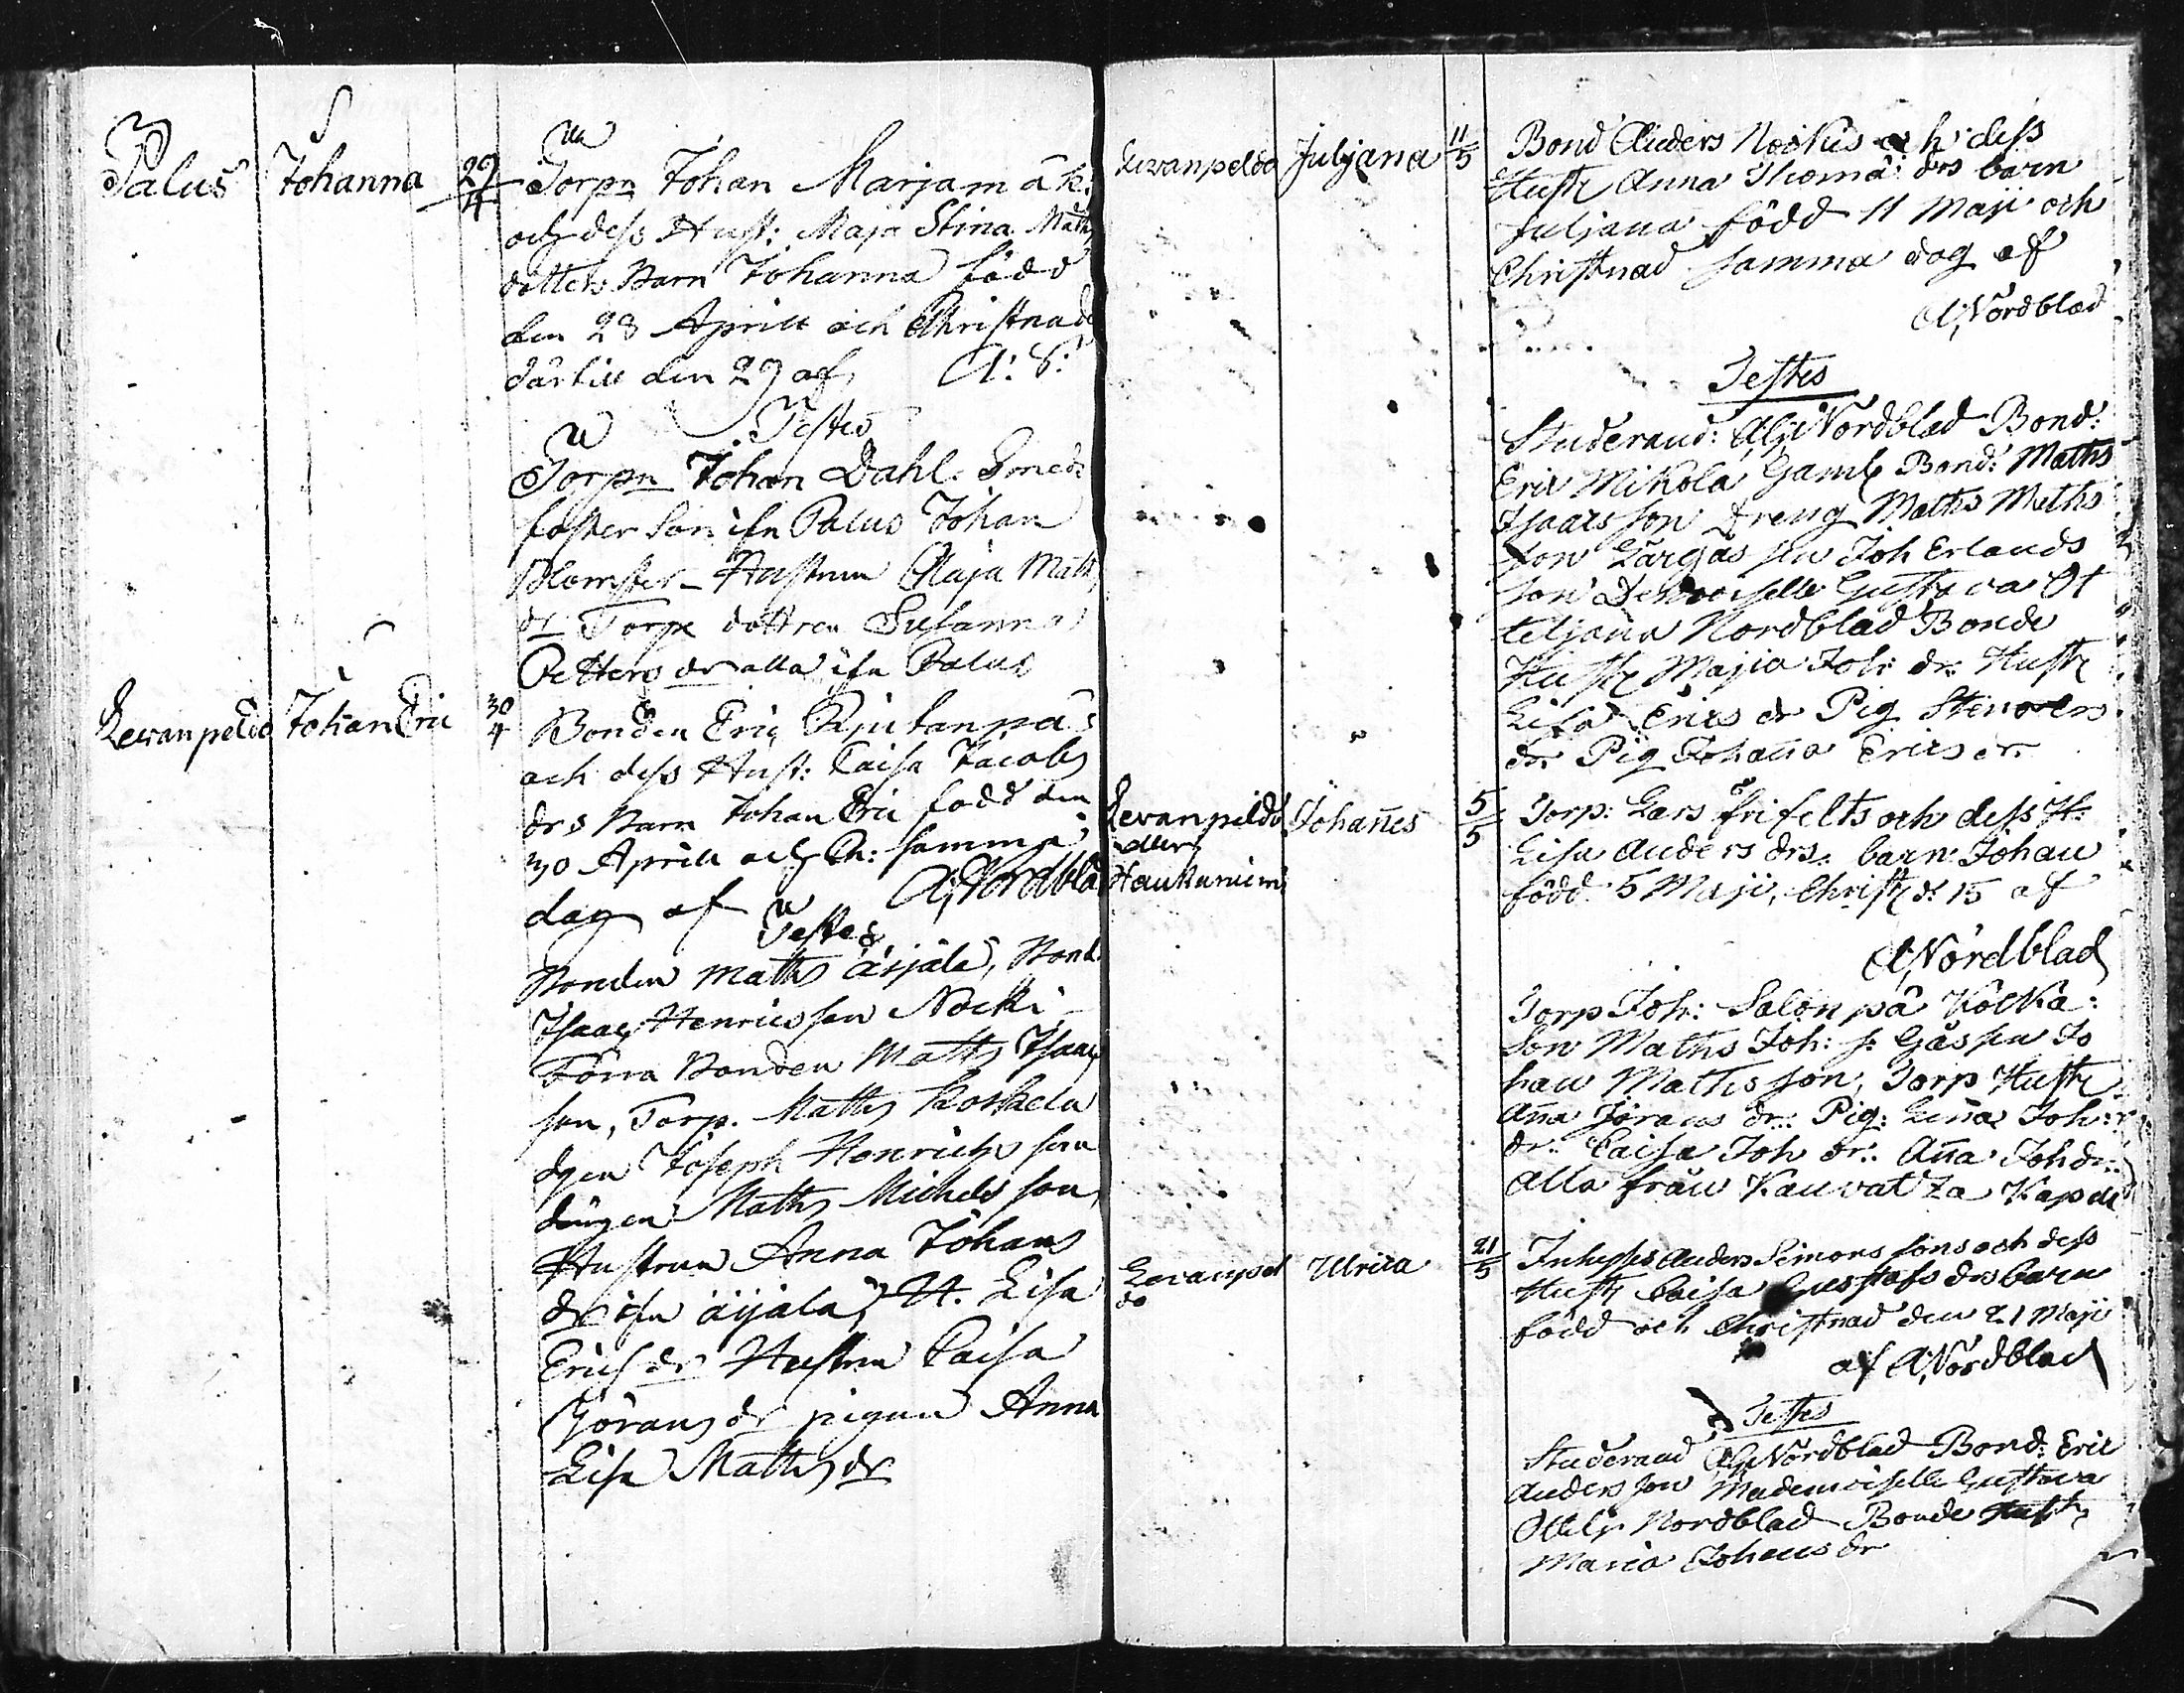 Palus Johanna 29/4 Torpn Johan Marjamäk:
och dess Hust: Maja Stina Math
dotters Barn Johanna född
den 28 Aprill och Christnade
därtill den 29 af A: S:
Testes
Torpn Johan Dahl. Smeds
foster Son ifn Palus Johan
Blomster – Hustrun Maja Math
dr Torpe dottren Susanna
Petters dr alla ifn Palus
Levanpeldo Johan Eric 30/4 Bonden Eric
och dess Hust: Caisa Jacobs
drs Barn Johan Eric född den
30 Aprill och Ch: samma
dag af A,Nordblad
Testes
Bonden Maths äijälä, Bond
Isaac Henricsson Nocki
Förra Bonden Matts Isaacs
son, Torp. Matts Koskela
dgen Joseph Henrichs son
drängen Maths Michels son
Hustrun Anna Johans
dr ifn äijälä, H. Lisa
Erichs dr Hustru Caisa
Görans dr pigan Anna
Lisa Matts dr
Levanpeldo Juljana 11/5 Bond Anders Nockis och dess
Hustr Anna Thomä drs barn
Juljana född 11 Maji och
Christnad samma dag af
A,Nordblad
Testes
Studerand: Nordblad Bond:
Eric Mikola Gaml Bond: Maths
Isaacsson Dreng Maths Maths
son Gårgås sen Joh Erlands
son Demoiselle Gustava Ot
teljana Nordblad Bonde
Hustr Majia Joh: dr: Hustr
Lisa Erics dr Pig
dr Pig Johana Erics dr
Levanpeldo Johañes 5/5 Torp: Lars frifelts och dess H:
eller Lisa Anders drs: barn Johan
född 5 Maji, Christ d: 15 af
A,Nordblad
Torp Joh: Salon på Kolka:
Son Maths Joh: s: Gåssen Jo
han Mathsson, Torp Hustr
Aña Jörans dr: Pig: Liña Joh:
dr: Caisa Joh dr: Aña Joh dr:
Alla från Kauvatza Kapell
Levanpel Ulrica 21/5 Inhyses Anders Simons sons och dess
do Hustr Caisa Gustafs drs barn
född och Christnad den 21 Maji
af A,Nordblad
Testes
Studerand Nordblad Bond: Eric
Andersson Mademoiselle Gustava
Ottelj: Nordblad Bonde Hustr
Maria Johans dr